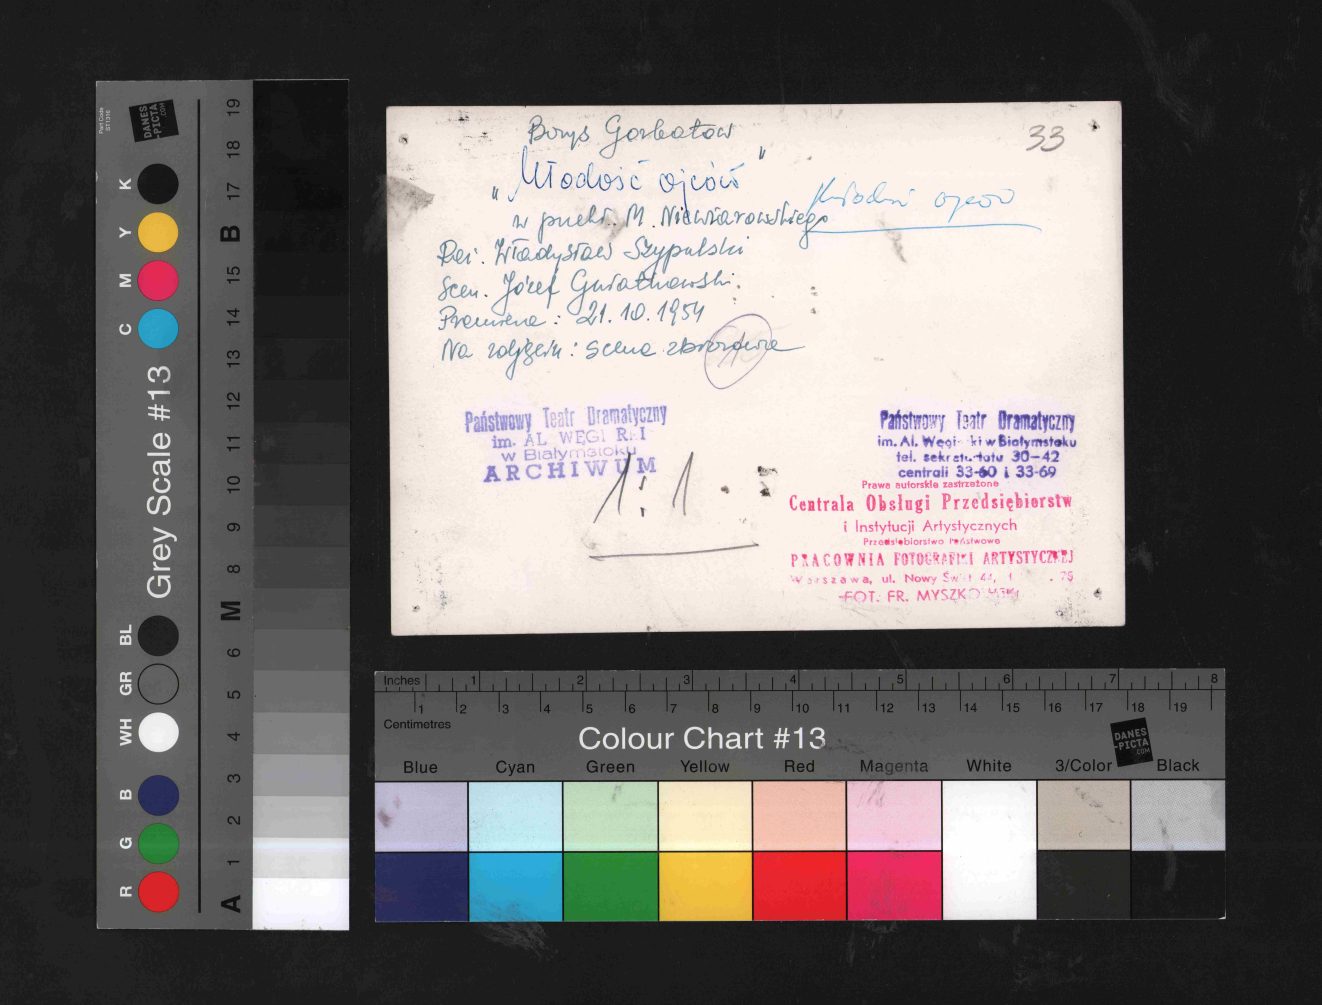 33
Borys Gorbatow
"Młodość ojców"
Młodość ojców
w przekł. M. Niewiarowskiego
Reż. Władysław Szypulski
Scen. Józef
Premiera: 21.10.1954
Na zdjęciu: scena zbiorowa
Państwowy Teatr Dramatyczny
im. AL WĘGI R I
w Białymstoku
ARCHIWUM
1:1
Państwowy Teatr Dramatyczny
im. Al. Węgi ki w Białymstoku
tel. sekretariatu 30-42
centrali 33-60 i 33-69
Prawa autorskie zastrzeżone
Centrala Obsługi Przedsiębiorstw
i Instytucji Artystycznych
Przedsiębiorstwo Państwowe
PRACOWNIA FOTOGRAFIKI ARTYSTYCZNEJ
Warszawa, ul. Nowy Świat
FOT. FR. MYSZKO
Part Code
ST1316
DANES
-PICTA
.COM
Grey Scale #13
K Y M C
BL GR WH
B G R
19 18 17 B 15 14 13 12 11 10 9 8 M 6 5 4 3 2 1 A
Inches 1 2 3 4 5 6 7 8
1 2 3 4 5 6 7 8 9 10 11 12 13 14 15 16 17 18 19
Centimetres
Colour Chart #13
DANES
-PICTA
.COM
Blue Cyan Green Yellow Red Magenta White 3/Color Black